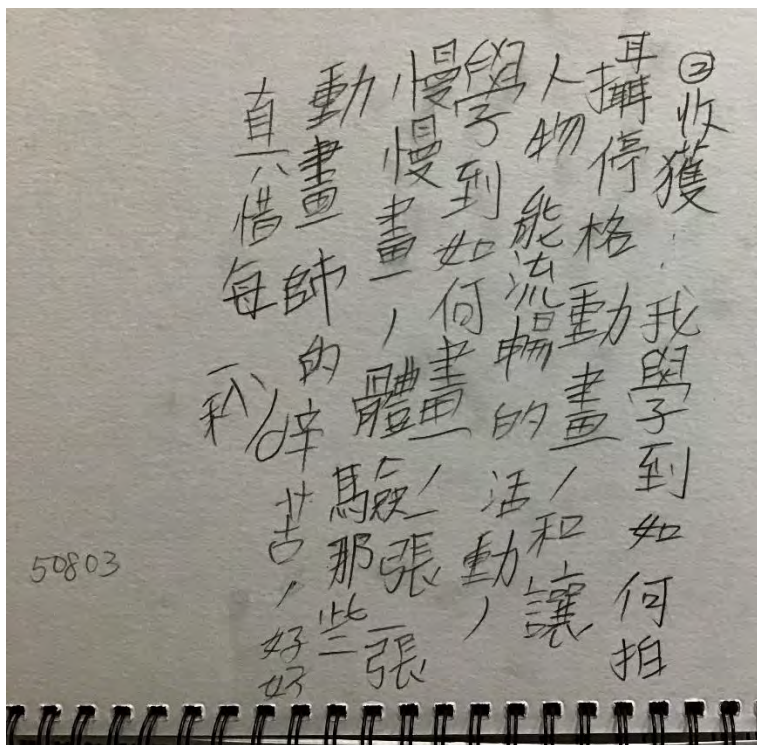 ②收獲：我學到如何拍
攝停格動畫，和讓
人物能流暢的活動，
學到如何畫，一張一張
慢慢畫，體驗那些
動畫師的辛苦，好好
真惜每一秒
50803